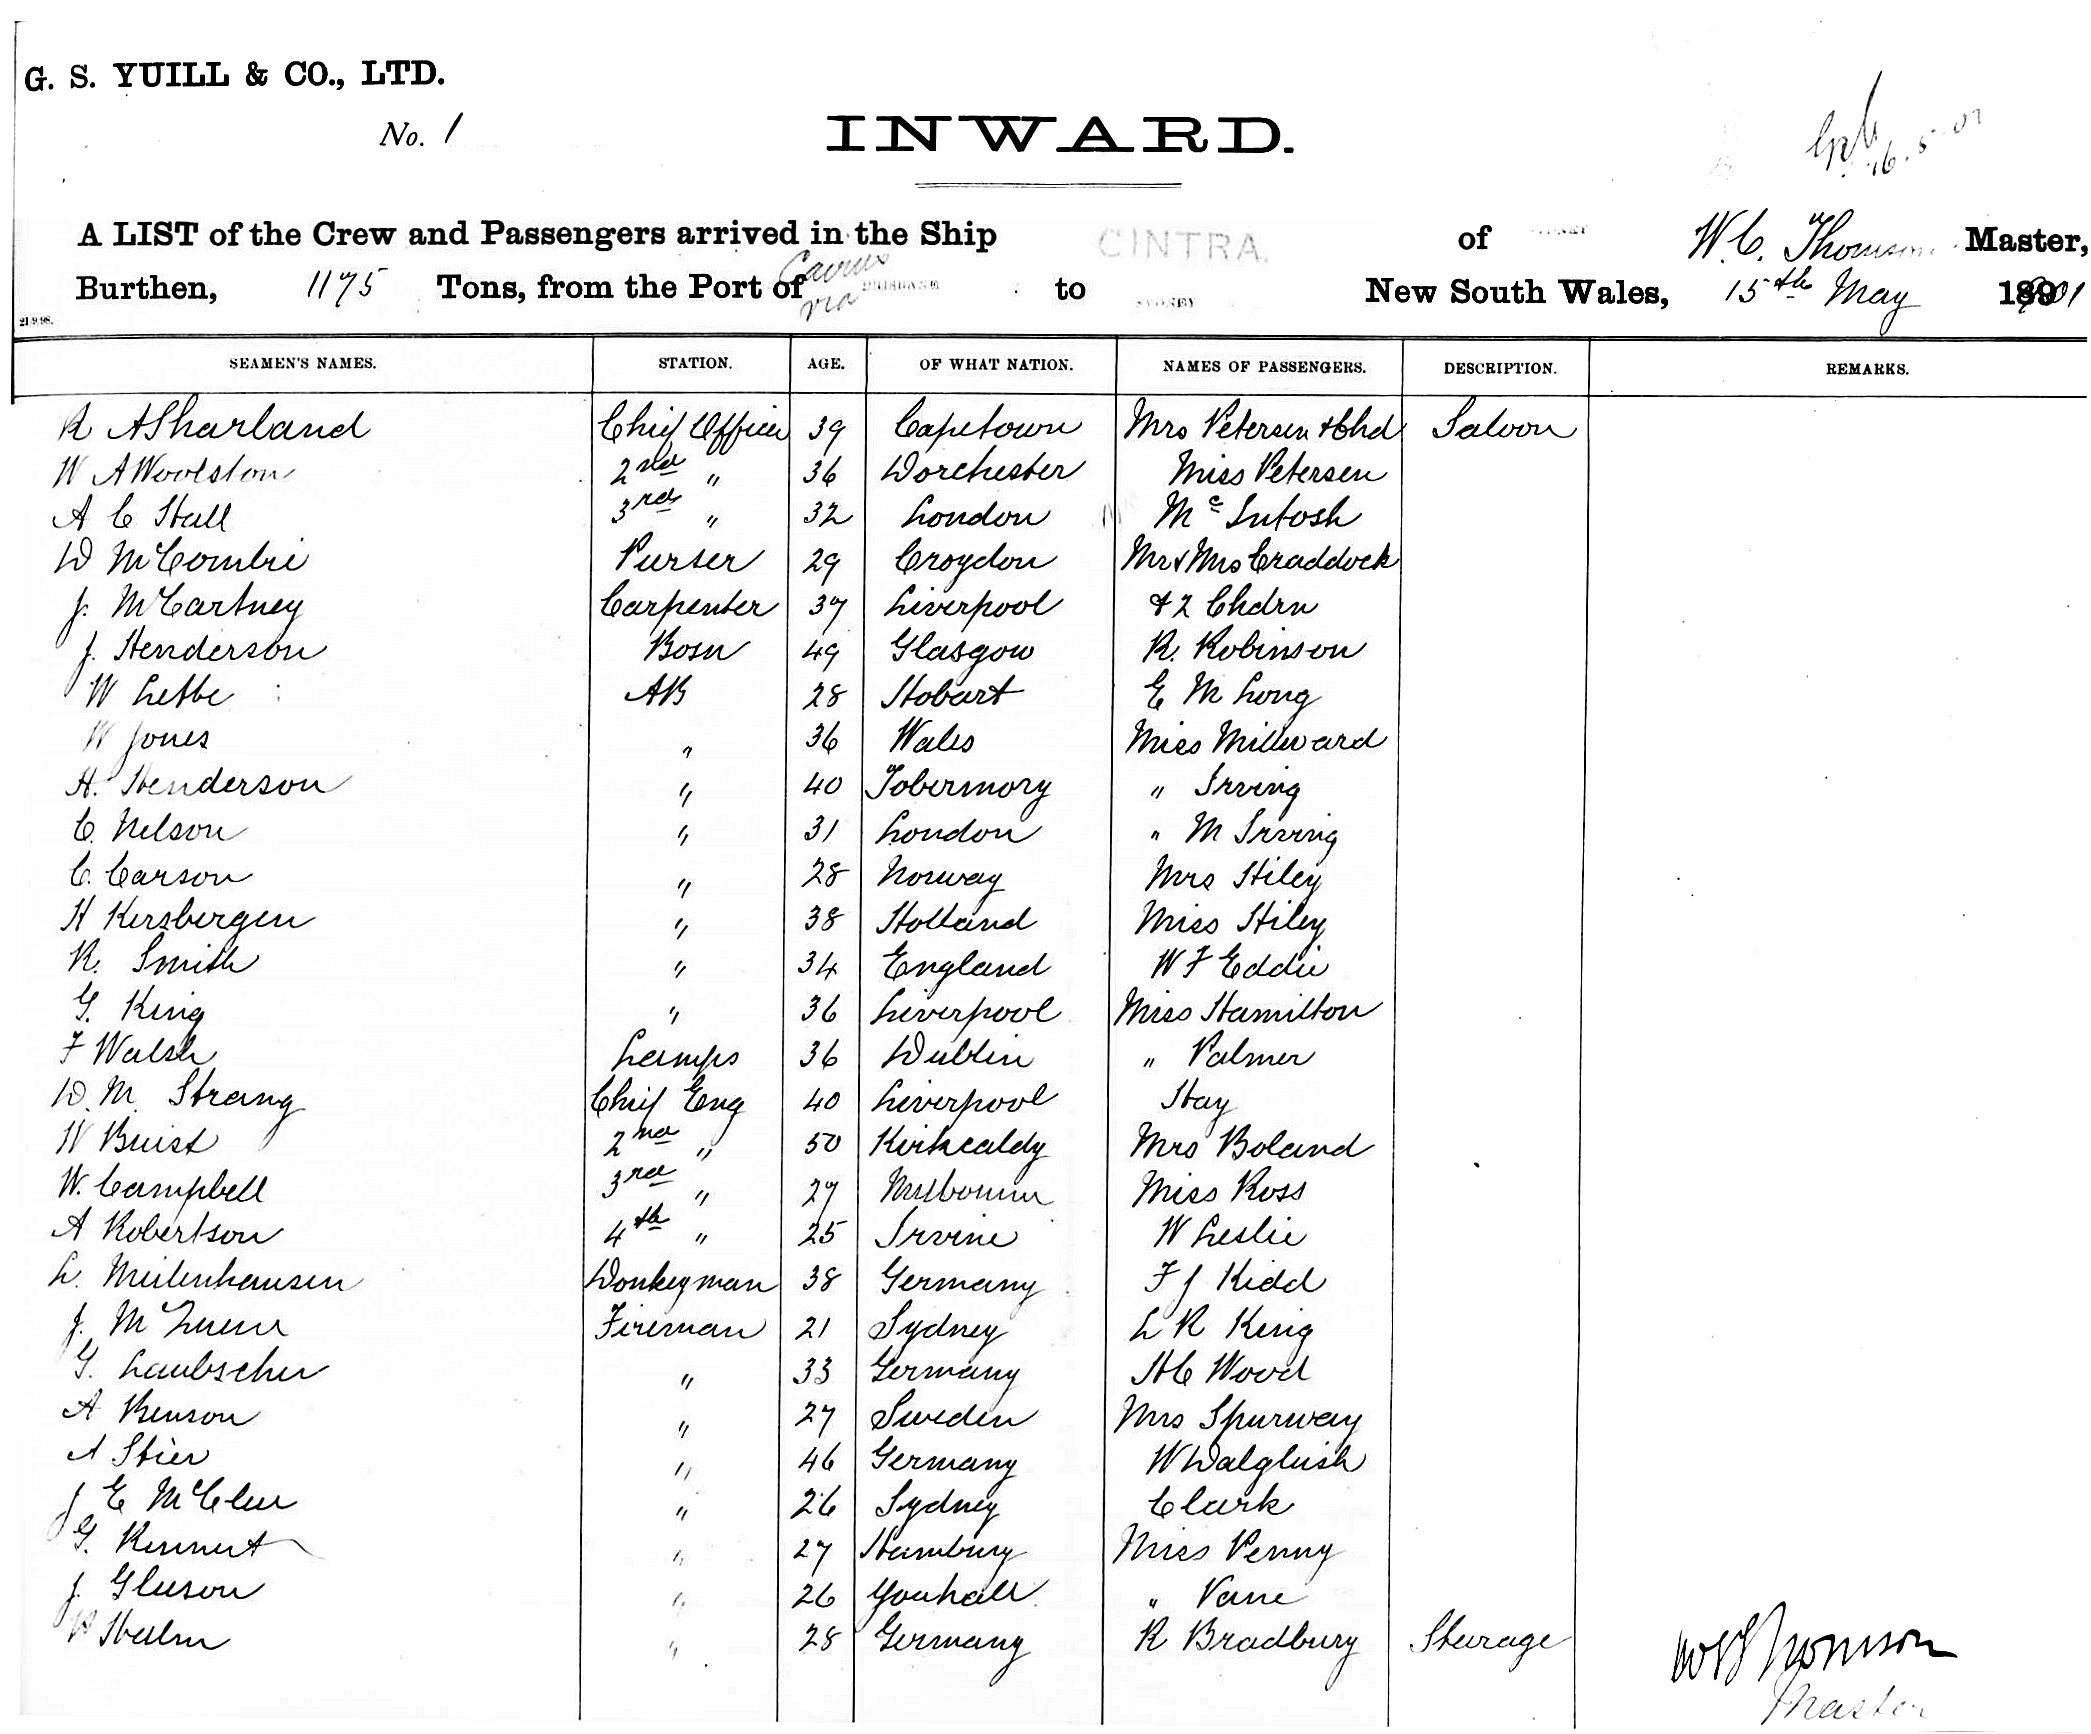 G. S. YUILL & CO., LTD.
No. 1
INWARD.
16.5.01
A LIST of the Crew and Passengers arrived in the Ship CINTRA. of SYDNEY W. C. Thomson Master,
Burthen, 1175 Tons, from the Port of Cairns via BRISBANE to SYDNEY New South Wales, 15th May 1901
21-9-98.
SEAMEN'S NAMES. STATION. AGE. OF WHAT NATION. NAMES OF PASSENGERS. DESCRIPTION. REMARKS.
R A Sharland Chief Officer 39 Capetown Mrs Petersen & Chd Saloon
W A Woolston 2nd " 36 Dorchester Miss Petersen
A C Hall 3rd " 32 London Mc Intosh
D McCombie Purser 29 Croydon Mr & Mrs Craddock
J. McCartney Carpenter 37 Liverpool & 2 Chdrn
J. Henderson Bosn 49 Glasgow R. Robinson
W AB 28 Hobart E M Long
W Jones " 36 Wales Miss Millward
H. Henderson " 40 Tobermory " Irving
C. Nelson " 31 London " M Irving
C. Carson " 28 Norway Mrs Hiley
H Kersbergen " 38 Holland Miss Hiley
R. Smith " 34 England W F Eddie
G. King " 36 Liverpool Miss Hamilton
F Walsh Lamps 36 Dublin " Palmer
D. M. Strang Chief Eng 40 Liverpool Hay
W Buist 2nd " 50 Kirkcaldy Mrs Boland
W. Campbell 3rd " 27 Melbourne Miss Ross
A Robertson 4th " 25 Irvine W Leslie
L. Meilenhausen Donkeyman 38 Germany F J Kidd
J. McQueen Fireman 21 Sydney L R King
G. Laubscher " 33 Germany H C Wood
A Benson " 27 Sweden Mrs Spurway
A Stier " 46 Germany W Dalgleish
J E McClure " 26 Sydney Clark
G. Rennert " 27 Hamburg Miss Penny
J. Gleeson " 26 Youhall " Vane
Halm " 28 Germany R Bradbury Steerage
W C Thomson
Master